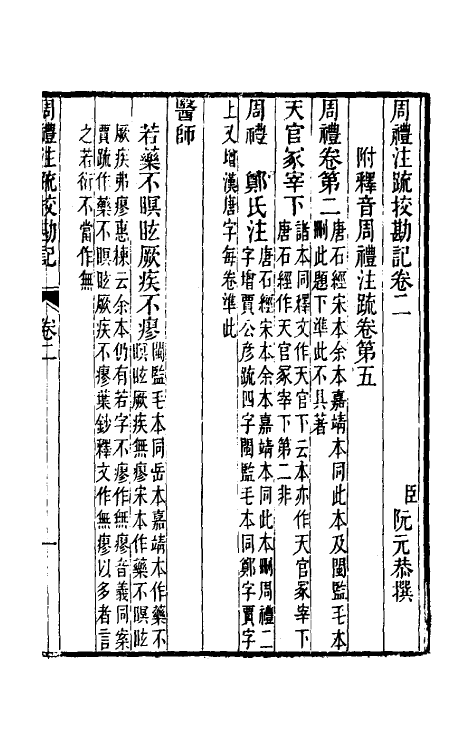 周禮注疏挍勘記卷二
臣阮元恭撰
附釋音周禮注疏卷第五
周禮卷第二
唐石經宋本余本嘉靖本同此本及閩監毛本
刪此題下準此不具著
天官冢宰下
諸本同釋文作天官下云本亦作天官冢宰下
唐石經作天官冢宰下第二非
周禮
鄭氏注
唐石經宋本余本嘉靖本同此本刪周禮二
字增賈公彥疏四字閩監毛本同鄭字賈字
上又增漢唐字每卷準此
醫師
若藥不瞑眩厥疾不瘳
閩監毛本同岳本嘉靖本作藥不
瞑眩厥疾無瘳宋本作藥不瞑眩
厥疾弗瘳惠棟云余本仍有若字不瘳作無瘳音義同案
賈疏作藥不瞑眩厥疾不瘳葉鈔釋文作無瘳以多者言
之若衍不當作無
周禮注疏挍勘記
卷二
一